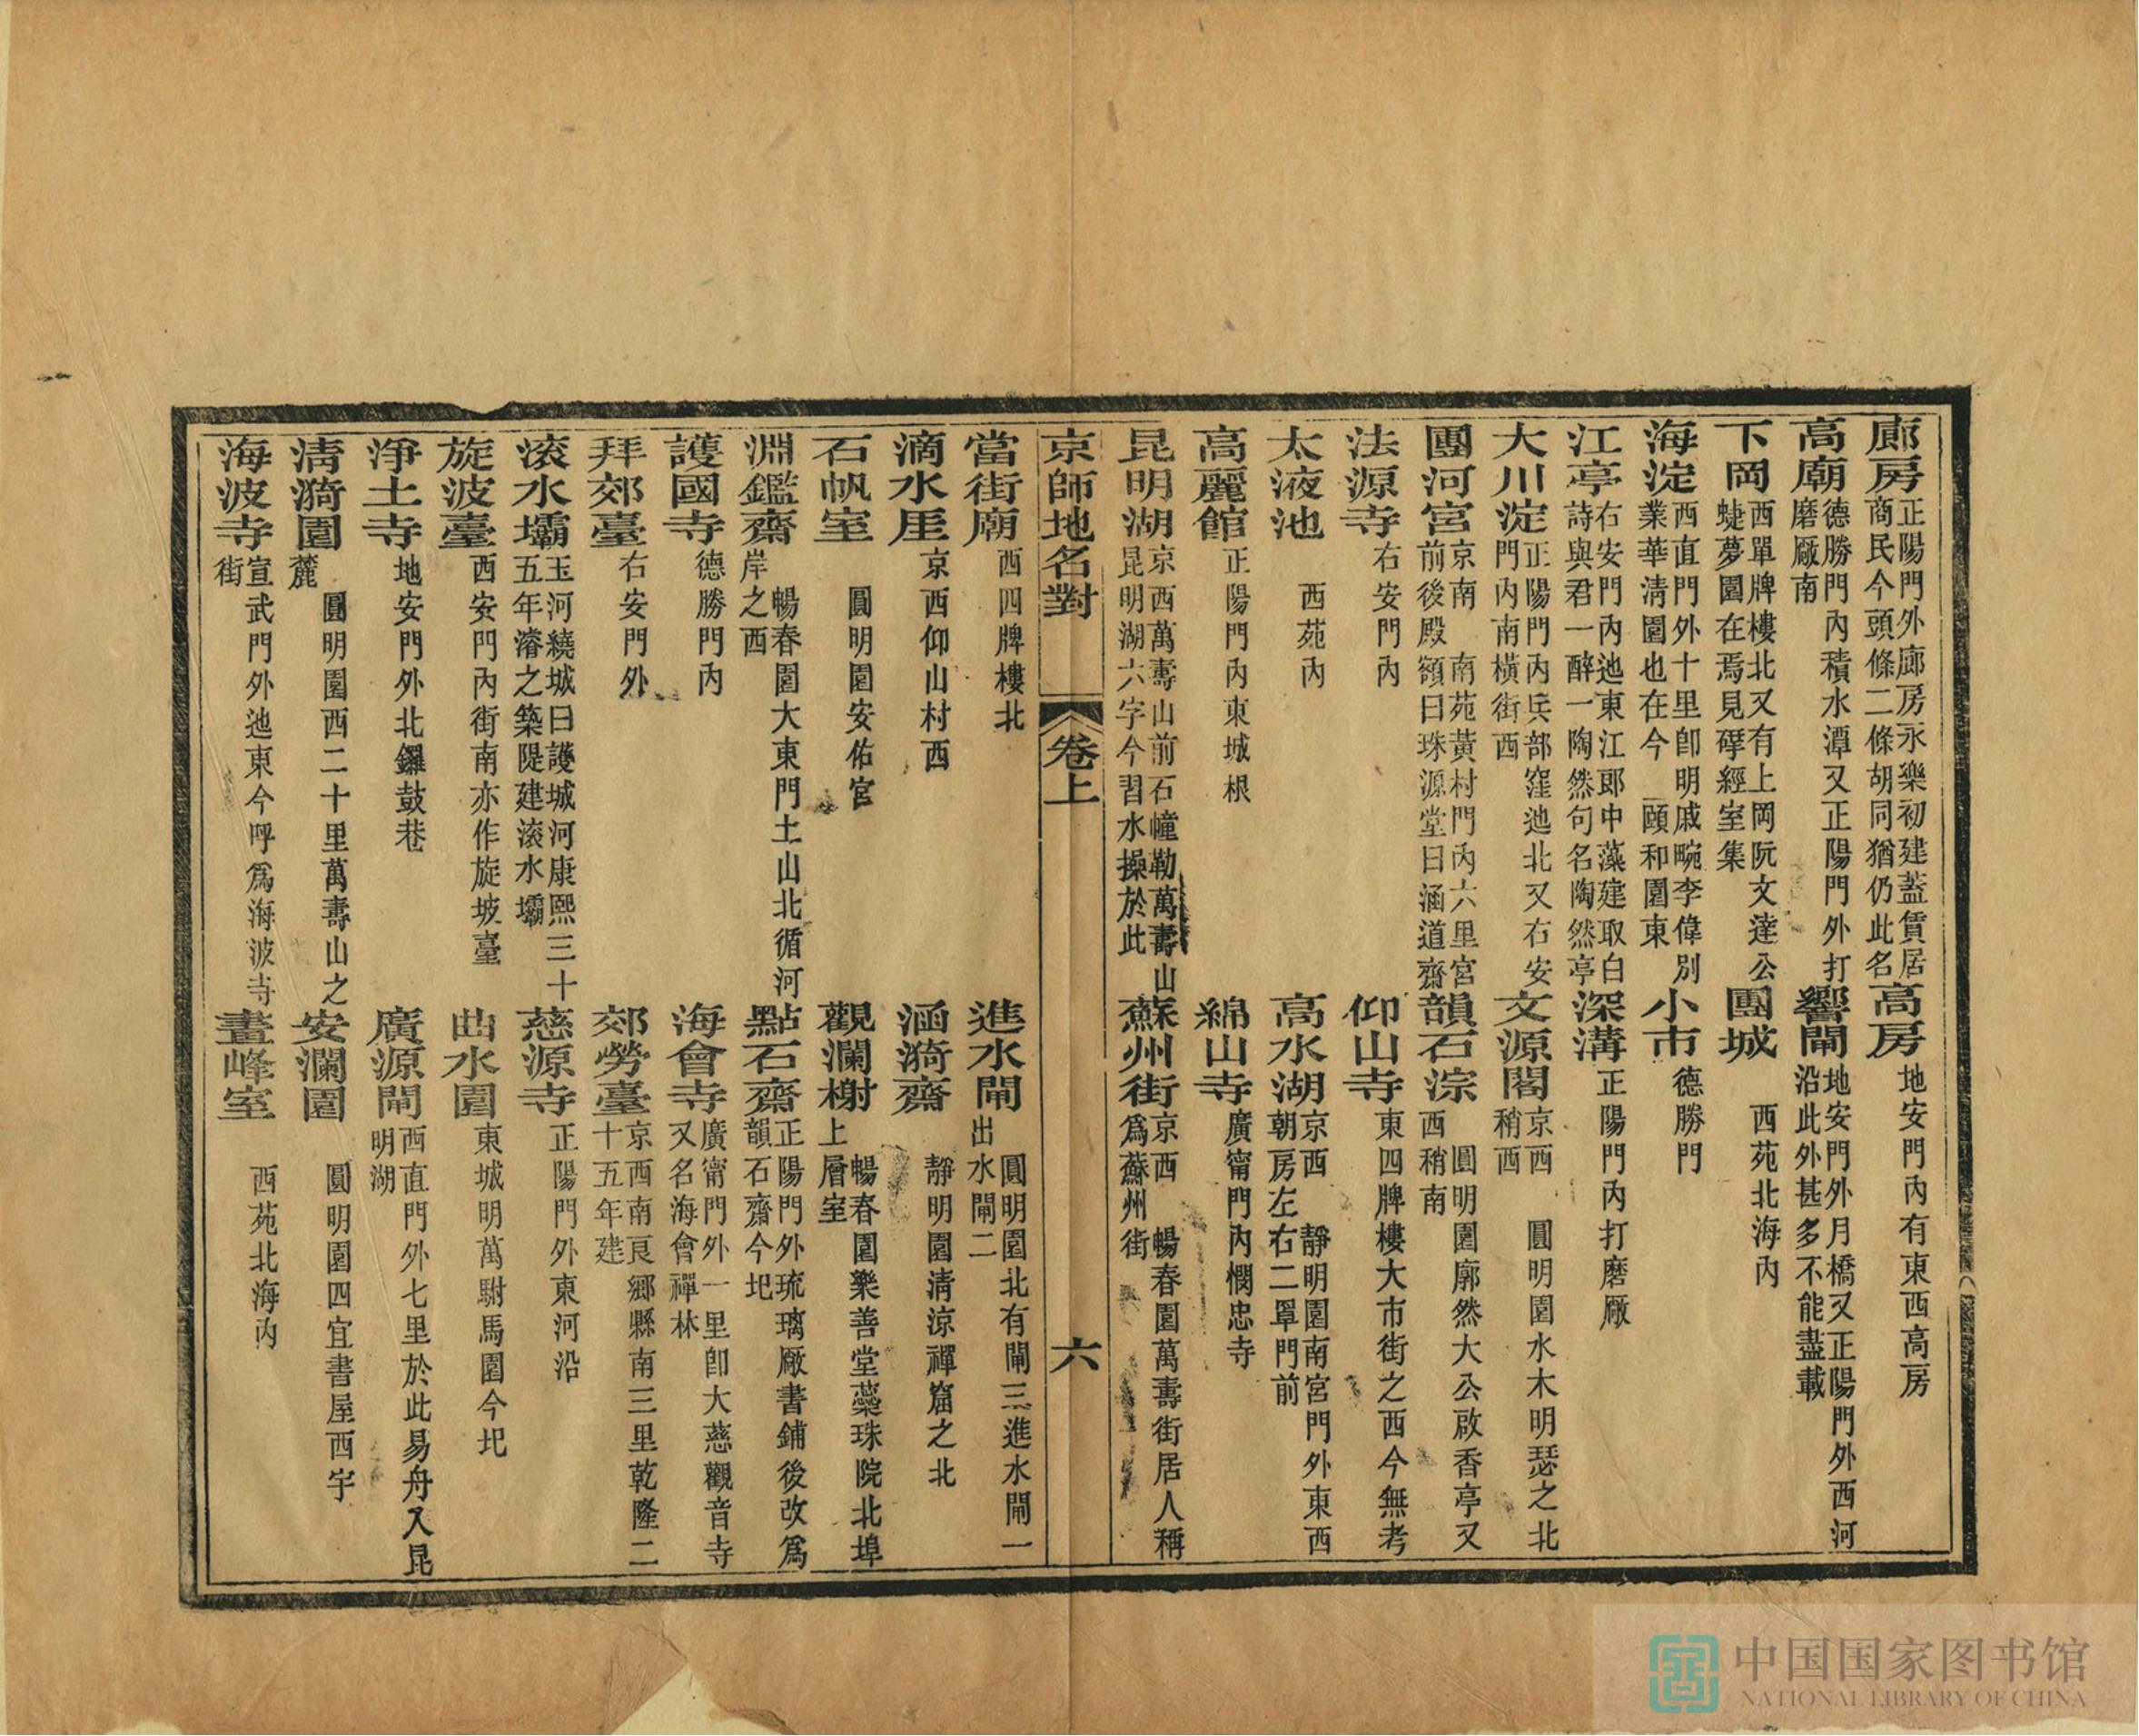 廊房正陽門外廊房永樂初建蓋賃居商民今頭條二條胡同猶仍此名高房地安門內有東西高房
高廟德勝門內積水潭又正陽門外打磨厰南響閘地安門外月橋又正陽門外西河沿此外甚多不能盡載
下岡西單牌樓北又有上岡阮文達公蜨夢園在焉見揅經室集團城西苑北海內
海淀西直門外十里卽明戚畹李偉別業華清園也在今頤和園東小市德勝門
江亭右安門內迤東江郎中藻建取白詩與君一醉一陶然句名陶然亭深溝正陽門內打磨厰
大川淀正陽門內兵部窪迤北又右安門內南橫街西文源閣京西圓明園水木明瑟之北稍西
團河宮京南南苑黃村門內六里宮前後殿額曰珠源堂曰涵道齋韻石淙圓明園廓然大公啟香亭又西稍南
法源寺右安門內仰山寺東四牌樓大市街之西今無考
太液池西苑內高水湖京西靜明園南宮門外東西朝房左右二罩門前
高麗館正陽門內東城根綿山寺廣甯門內憫忠寺
昆明湖京西萬壽山前石幢勒萬壽山昆明湖六字今習水操於此蘇州街京西暢春園萬壽街居人稱爲蘇州街
京師地名對 卷上 六
當街廟西四牌樓北進水閘圓明園北有閘三進水閘一出水閘二
滴水厓京西仰山村西涵漪齋靜明園清涼禪窟之北
石帆室圓明園安佑宮觀瀾榭暢春園樂善堂蘂珠院北埠上層室
淵鑑齋暢春園大東門土山北循河岸之西點石齋正陽門外琉璃厰書鋪後改爲韻石齋今圮
護國寺德勝門內海會寺廣甯門外一里卽大慈觀音寺又名海會禪林
拜郊臺右安門外郊勞臺京西南良鄉縣南三里乾隆二十五年建
滾水壩玉河繞城曰護城河康熙三十五年濬之築隄建滾水壩慈源寺正陽門外東河沿
旋波臺西安門內街南亦作旋坡臺曲水園東城明萬駙馬園今圮
淨土寺地安門外北鑼鼓巷廣源閘西直門外七里於此易舟入昆明湖
清漪園圓明園西二十里萬壽山之麓安瀾園圓明園四宜書屋西宇
海波寺街宣武門外迤東今呼爲海波寺晝峰室西苑北海內
中国国家图书馆
NATIONAL LIBRARY OF CHINA